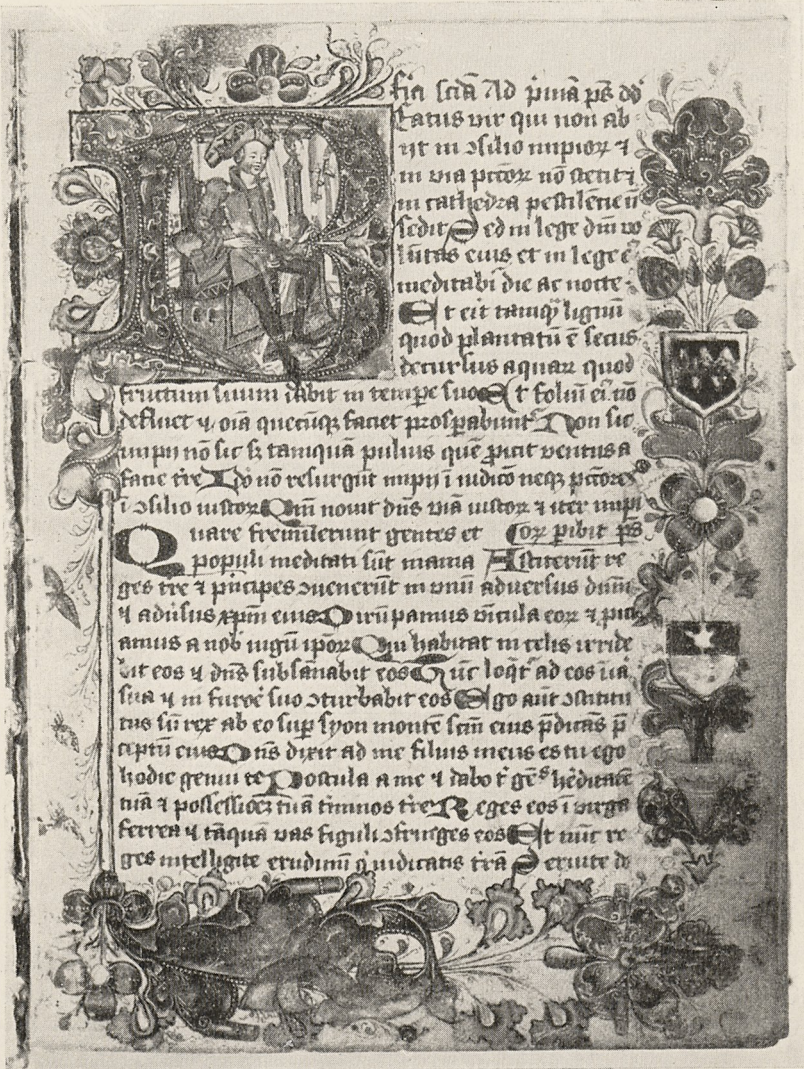 fia scdā Ad pͥmā ps̄ dd̄
Beatus vir qui non ab
iit in ↄsilio impioꝝ ⁊
in via pctoꝝ nō stetit ⁊
in cathedra pestilencie nō
sedit Sed in lege dn̄i vo
lūtas eius et in lege eͥ
meditabit̉ die ac nocte
Et erit tamqͣ lignū
quod plantatū ē secus
decursus aquaꝝ quod
fructum suum dabit in tempe suo Et foliū eiꝰ nō
defluet ⁊ oīa quecūqꝫ faciet prosꝑabunt̉ Non sic
impii nō sic sꝫ tamquā puluis quē ꝓicit ventus a
facie tr̄e Ido nō resurgūt impii ī iudico neqꝫ pctores
ī ↄsilio iustoꝝ Qm̄ nouit dn̄s viā iustoꝝ ⁊ iter impi
Quare fremuerunt gentes et oꝝ ꝑibit ps̄
populi meditati sūt inania Astiterūt re
ges tr̄e ⁊ pͥncipes ↄuenerūt in vnū aduersus dnm̄
⁊ adūsus xp̄m eius Dirūpamus vīcula eoꝝ ⁊ pͥci
amus a nob̄ iugū ip̄oꝝ Qui habitat in celis irride
bit eos ⁊ dn̄s subsānabit eos Tūc loqͭ ad eos ī īa
sua ⁊ in furoē suo ↄturbabit eos Ego aūt ↄstitu
tus sū rex ab eo suꝑ syon montē scm̄ eius p̄dicās p̄
ceptū eius Dn̄s dixit ad me filius meus es tu ego
hodie genui te Postula a me ⁊ dabo t̉ gēs hēditatē
tuā ⁊ possessioēꝫ tuā tīminos tr̄e Reges eos ī virga
ferrea ⁊ tāquā vas figuli ↄfrīges eos Et nūc re
ges intelligite erudimī qͥ iudicatis trā Seruite d